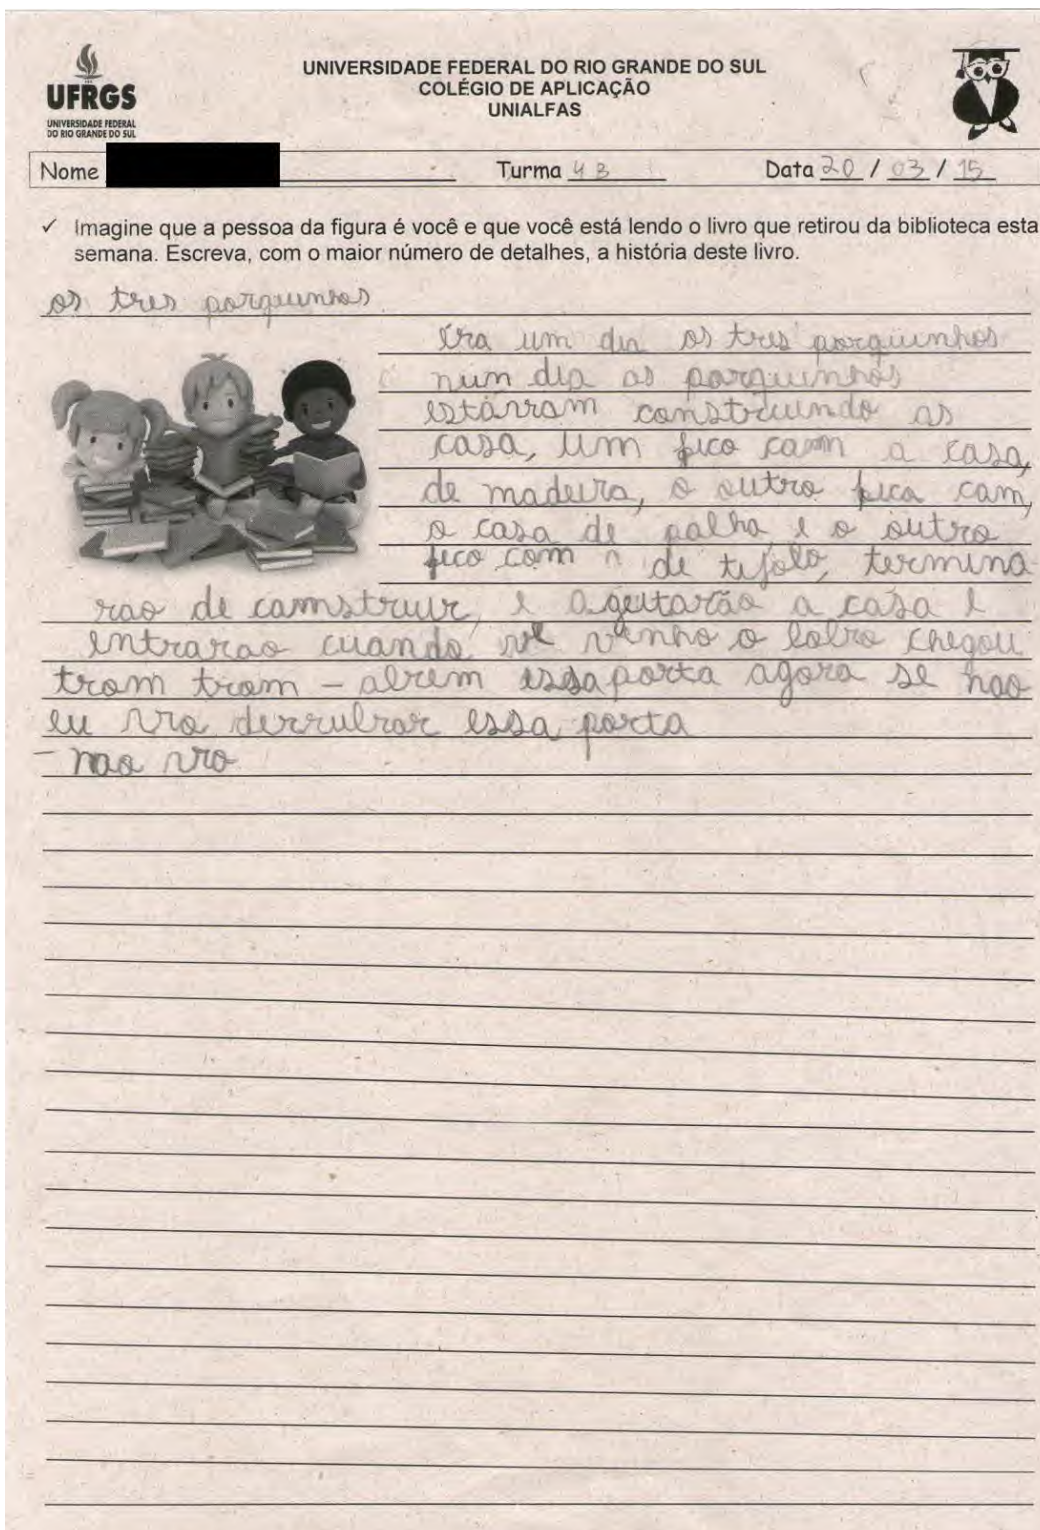 UFRGS
UNIVERSIDADE FEDERAL
DO RIO GRANDE DO SUL
UNIVERSIDADE FEDERAL DO RIO GRANDE DO SUL
COLÉGIO DE APLICAÇÃO
UNIALFAS
Nome Turma 4 B Data 20 / 03 / 15
✓ Imagine que a pessoa da figura é você e que você está lendo o livro que retirou da biblioteca esta
semana. Escreva, com o maior número de detalhes, a história deste livro.
os tres porquinhos
Era um dia os tres porquinhos
num dia os porquinhos
estavam construindo as
casa, um fico com a casa,
de madeira, o outro fica com,
a casa de palha e o outro
fico com a de tijolo, termina
rao de comstruir, e ageitarão a casa e
entrarao cuando venho o lobo chegou
trom trom - abrem essa porta agora se nao
eu vro derrubrar essa porta
- nao vro